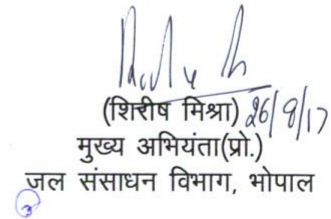 (शिरीष मिश्रा) 26/8/17
मुख्य अभियंता(प्रो.)
जल संसाधन विभाग, भोपाल